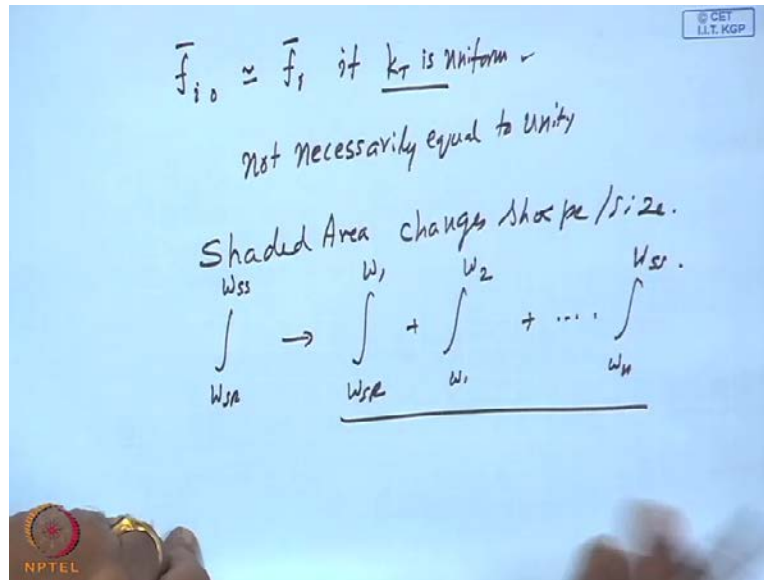 © CET
I.I.T. KGP
f̄i0 ≃ f̄i if kT is uniform
not necessarily equal to unity
Shaded Area changes shape/size.
ωss ω1 ω2 ωss.
∫ → ∫ + ∫ + .... ∫
ωsR ωsR ω1 ωn
NPTEL